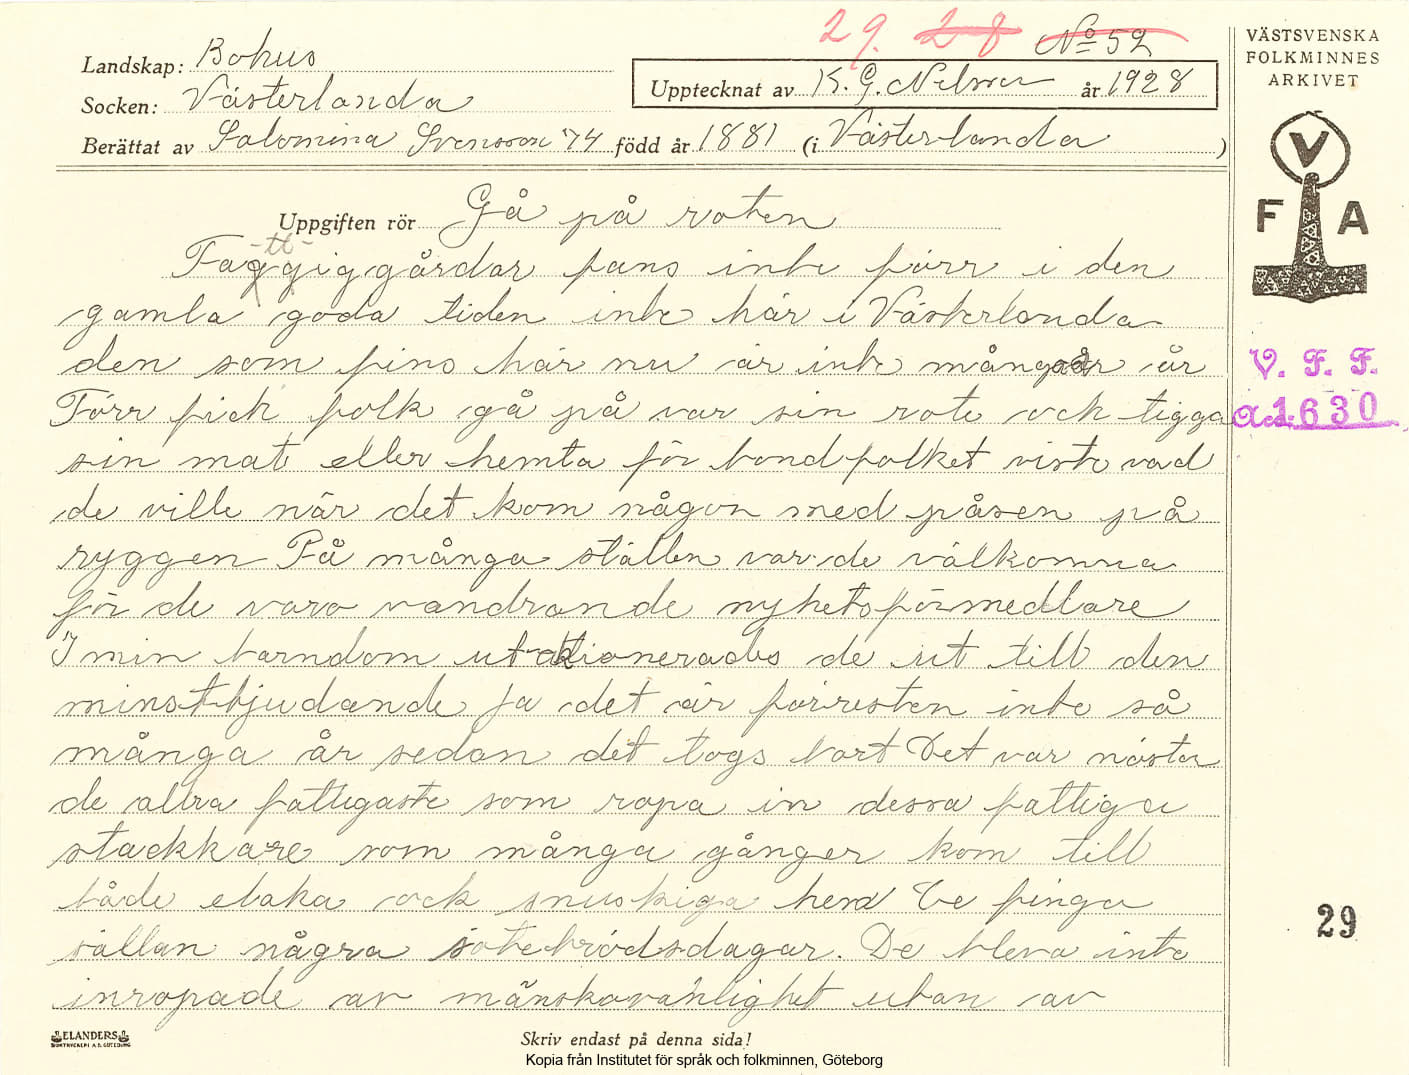 29. 28 No 52
Landskap: Bohus
Socken: Västerlanda
Upptecknat av K. G. Nilsson år 1928
Berättat av Salomina Svensson 74 född år 1881 (i Västerlanda )
VÄSTSVENSKA
FOLKMINNES
ARKIVET
V
F A
V. F. F.
Acc. 1630
Uppgiften rör Gå på roten
-tt-
Faggiggårdar fans inte förr i den
gamla goda tiden inte här i Västerlanda
den som fins här nu är inte många år
Förr fick folk gå på var sin rote och tigga
sin mat eller hemta för bondfolket viste vad
de ville när det kom någon med påsen på
ryggen På många ställen var de välkomna
för de varo vandrande nyhetsförmedlare
I min barndom utaktionerades de ut till den
minstbjudande Ja det är förresten inte så
många år sedan det togs bort Det var nästa
de allra fattigaste som ropa in dessa fattiga
stackkare som många gånger kom till
både elaka och snuskiga hem De finga
sällan några sötebrödsdagar. De bleva inte
inropade av mänskovänlighet utan av
29
ELANDERS
BOKTRYCKERI A.B. GÖTEBORG
Skriv endast på denna sida!
Kopia från Institutet för språk och folkminnen, Göteborg